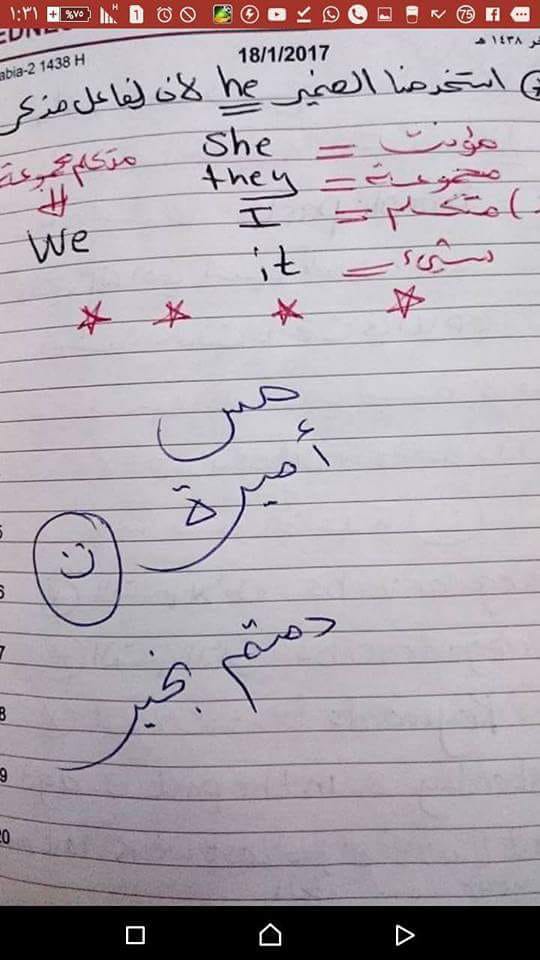 ١:٣١ %٧٥ 75
18/1/2017
abia-2 1438 H
ر ١٤٣٨ هـ
استخدمنا الضمير he لأن الفاعل مذكر
she = مؤنث
they = مجموعة
I = متكلم
متكلم مجموعة
We
it = شيء
مس
أميرة
ن
دمتم بخير
6
7
8
9
20